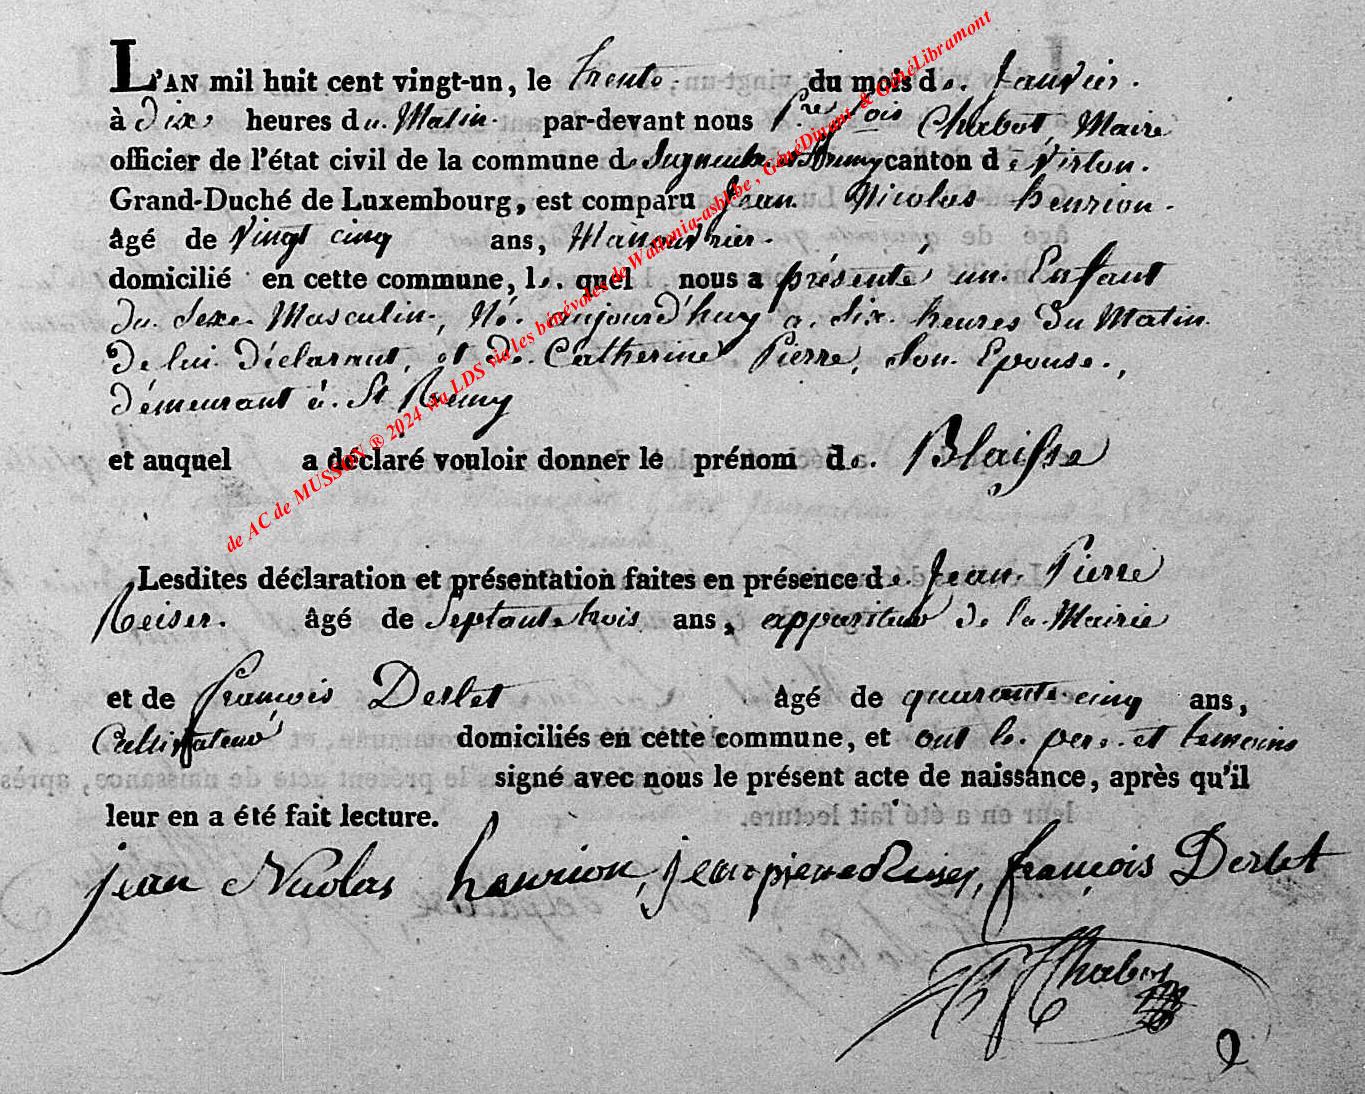 L'AN mil huit cent vingt-un, le trente du mois de Janvier.
à dix heures du Matin par-devant nous Pre fois Chabot Maire
officier de l'état civil de la commune de Signeulx St Remy canton de Virton.
Grand-Duché de Luxembourg, est comparu Jean Nicolas henrion.
âgé de Vingt cinq ans, Manouvrier.
domicilié en cette commune, le quel nous a présenté un Enfant
du sexe Masculin, Né aujourd'huy a dix heures du Matin
De lui Déclarant, et de Catherine Pierre, son Epouse,
démeurant à St Remy
et auquel a déclaré vouloir donner le prénom de Blaisse
Lesdites déclaration et présentation faites en présence de Jean Pierre
Reiser. âgé de Septante trois ans, appariteur de la Mairie
et de françois Derlet âgé de quarante cinq ans,
Cultivateur domiciliés en cette commune, et ont le pere et temoins
signé avec nous le présent acte de naissance, après qu'il
leur en a été fait lecture.
jean Nicolas henrion, jean pierre Reiser, françois Derlet
Chabot
de AC de MUSSON ® 2024 via LDS via les bénévoles de Wallonia-asbl.be , GénéDinant & GénéLibramont